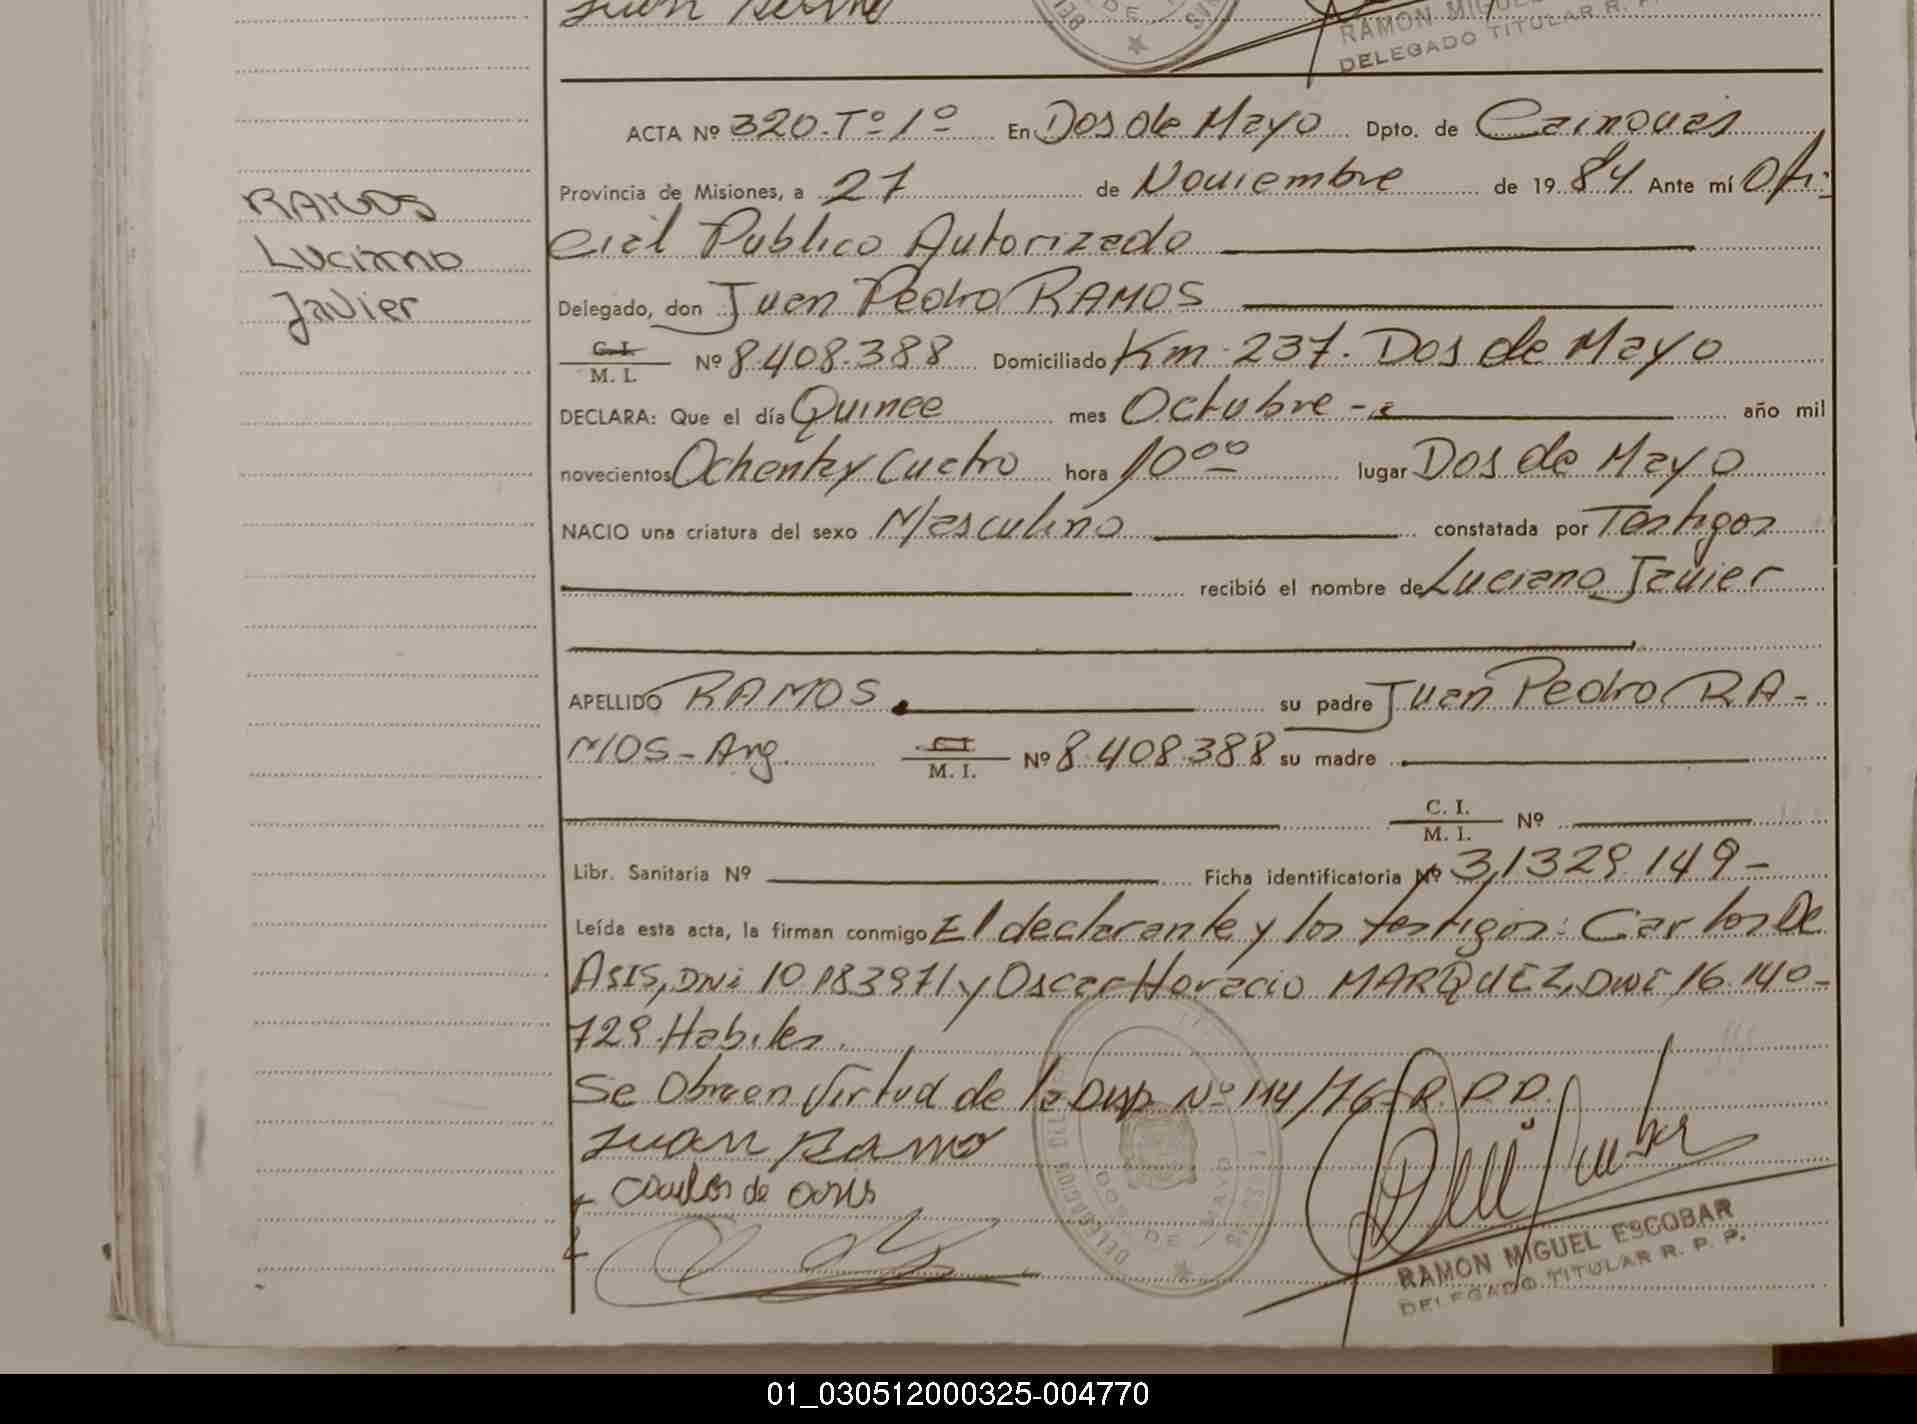 Juan
DE
RAMON MIGUEL
DELEGADO TITULAR R. P.
ACTA Nº 320. Tº 1º En Dos de Mayo Dpto. de Cainguás
Provincia de Misiones, a 27 de Noviembre de 1984 Ante mí Ofi-
cial Publico Autorizado
Delegado, don Juan Pedro RAMOS
C. I. / M. I. Nº 8.408.388 Domiciliado Km. 237. Dos de Mayo
DECLARA: Que el día Quince mes Octubre - año mil
novecientos Ochentay Cuatro hora 10⁰⁰ lugar Dos de Mayo
NACIO una criatura del sexo Masculino constatada por Testigos
recibió el nombre de Luciano Javier
APELLIDO RAMOS su padre Juan Pedro RA-
MOS - Arg. C I / M. I. Nº 8.408.388 su madre
C. I. / M. I. Nº
Libr. Sanitaria Nº Ficha identificatoria Nº 31329.149-
Leída esta acta, la firman conmigo El declarante y los testigos: Carlos De
ASIS, DNi 10.183971 y Oscar Horacio MARQUEZ, DNi 16.140-
729. Habiles.
Se Obra en Virtud de la Disp. Nº 114/76- R. P. P.
Juan Ramos
Carlos de Asis
DELEGACION DEL
DOS DE MAYO
RAMON MIGUEL ESCOBAR
DELEGADO TITULAR R. P. P.
RAMOS
Luciano
Javier
01_030512000325-004770